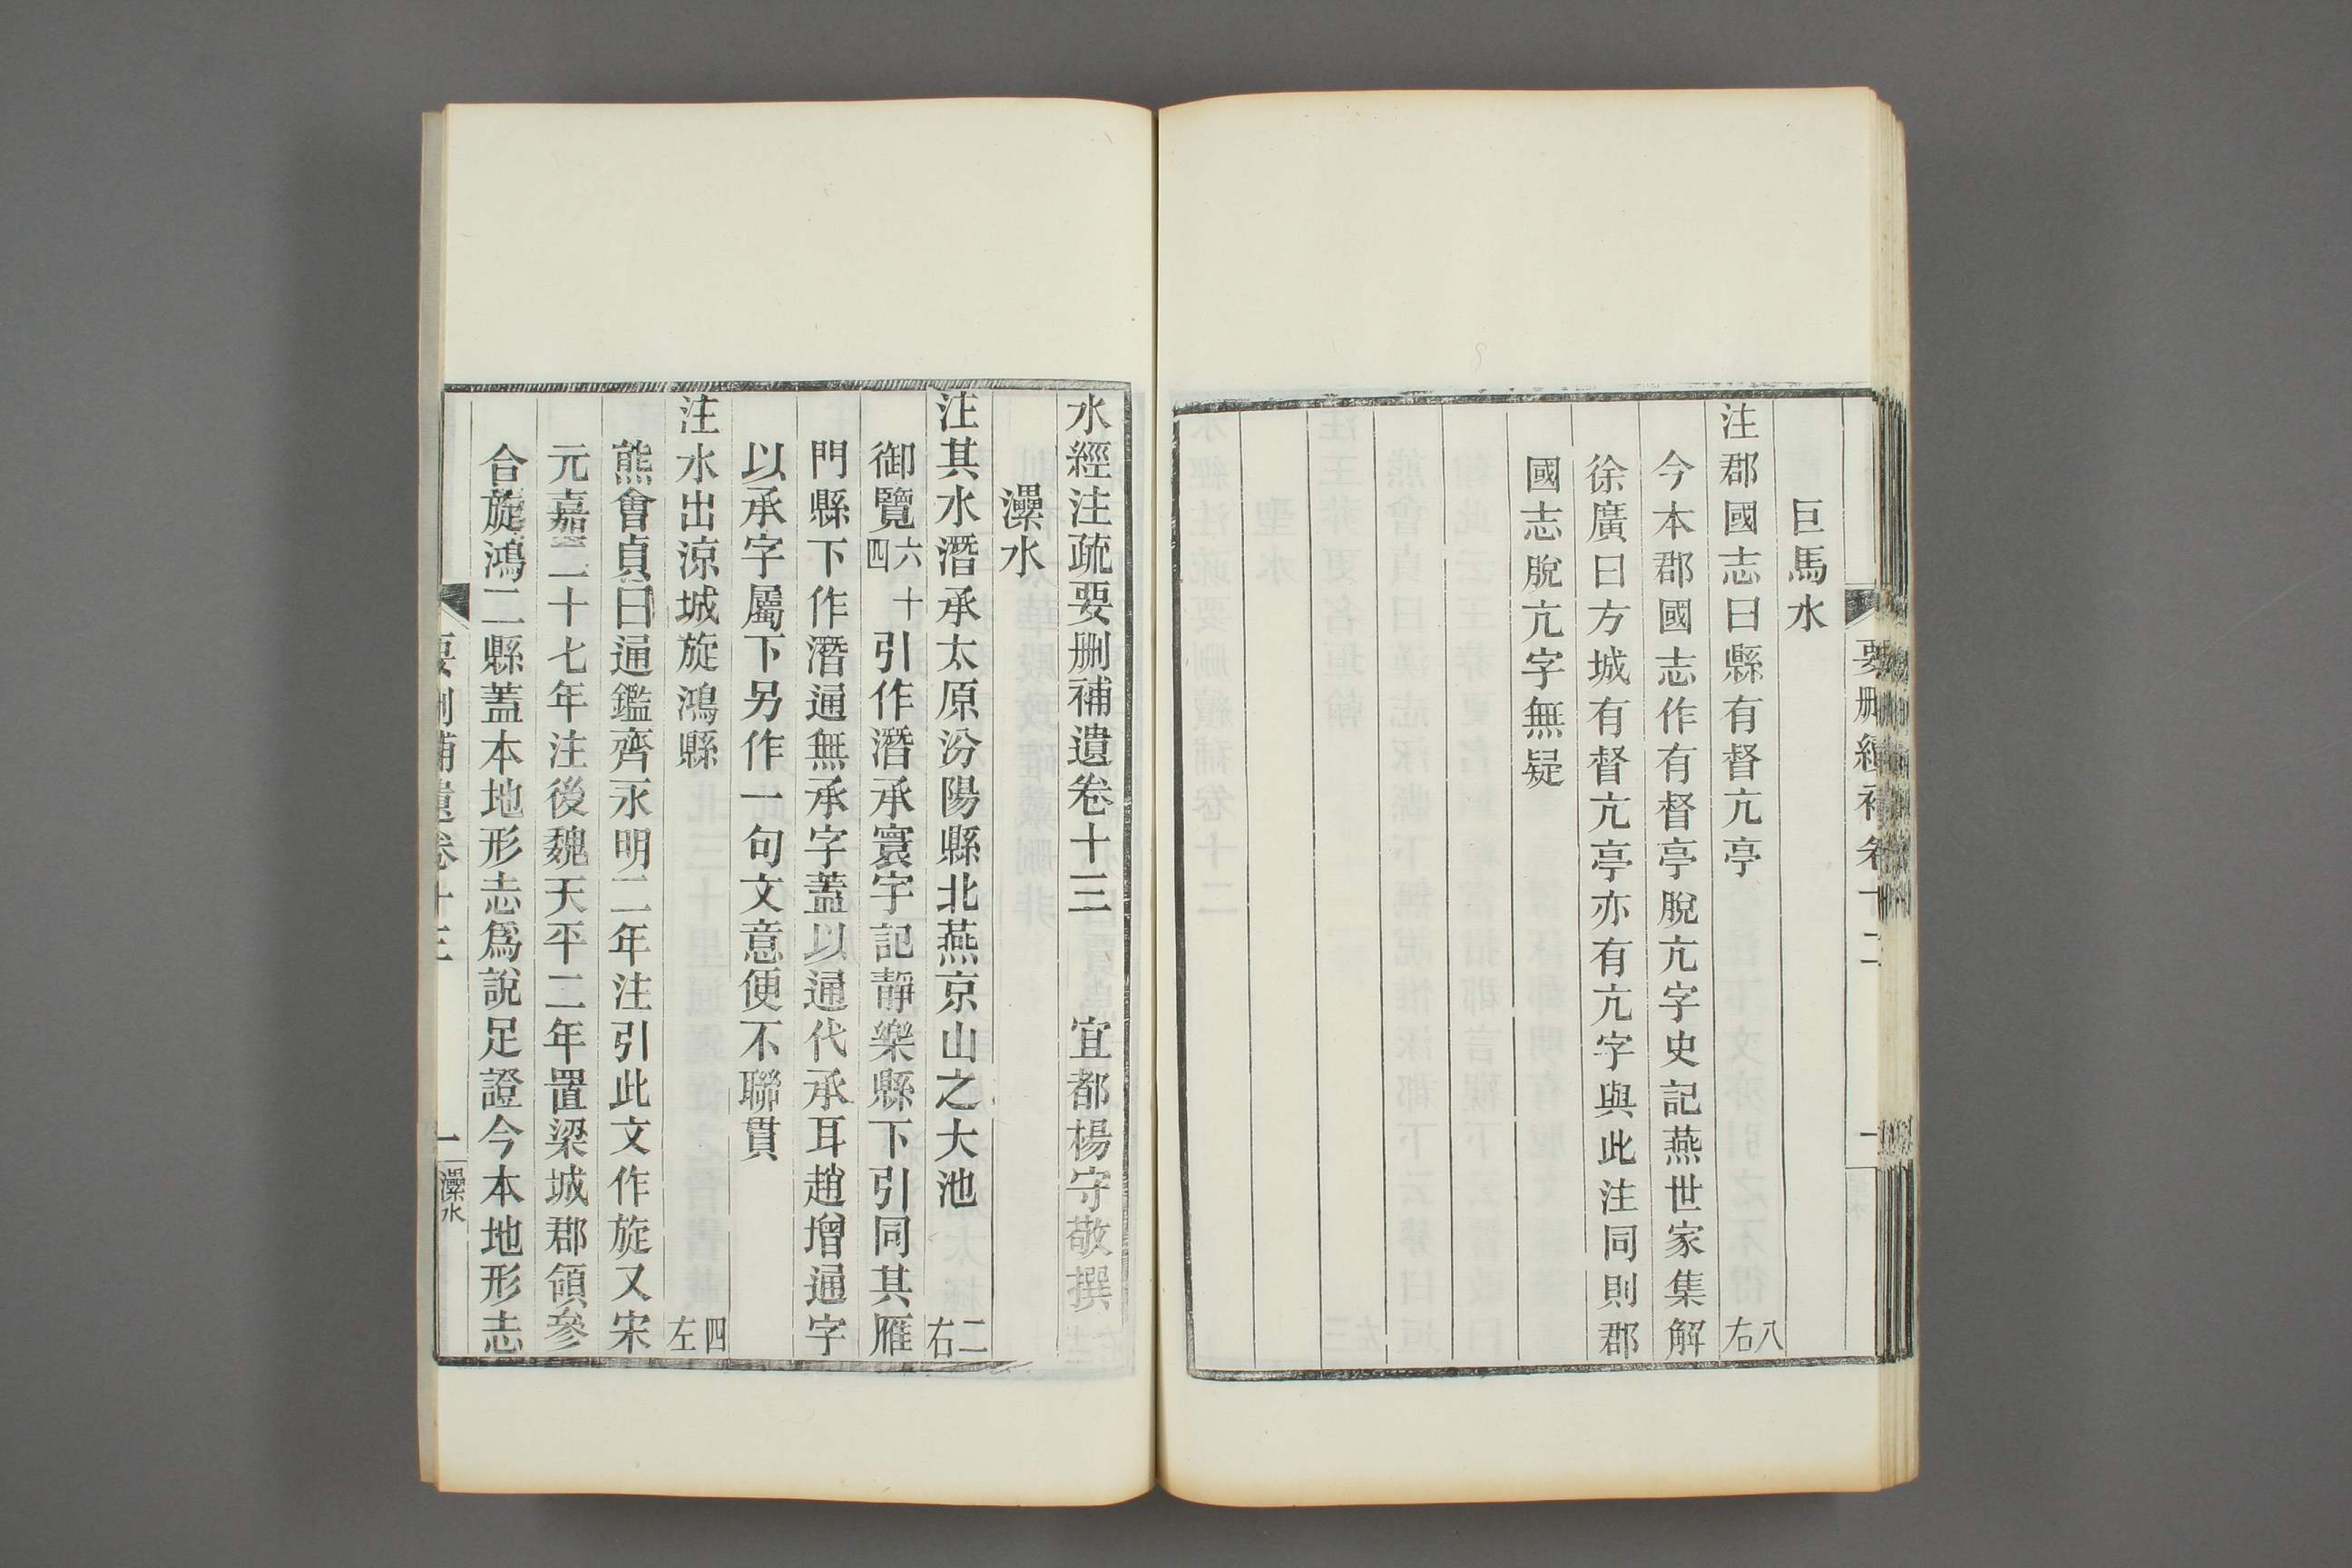 要刪續補卷十二 一
巨馬水
注郡國志曰縣有督亢亭 八右
今本郡國志作有督亭脫亢字史記燕世家集解
徐廣曰方城有督亢亭亦有亢字與此注同則郡
國志脫亢字無疑
水經注疏要刪補遺卷十三 宜都楊守敬撰
㶟水
注其水潛承太原汾陽縣北燕京山之大池 二右
御覽六十四引作潛承寰宇記靜樂縣下引同其雁
門縣下作潛通無承字蓋以通代承耳趙增通字
以承字屬下另作一句文意便不聯貫
注水出涼城旋鴻縣 四左
熊會貞曰通鑑齊永明二年注引此文作旋又宋
元嘉二十七年注後魏天平二年置梁城郡領參
合旋鴻二縣蓋本地形志爲說足證今本地形志
要刪補遺卷十三 一 㶟水